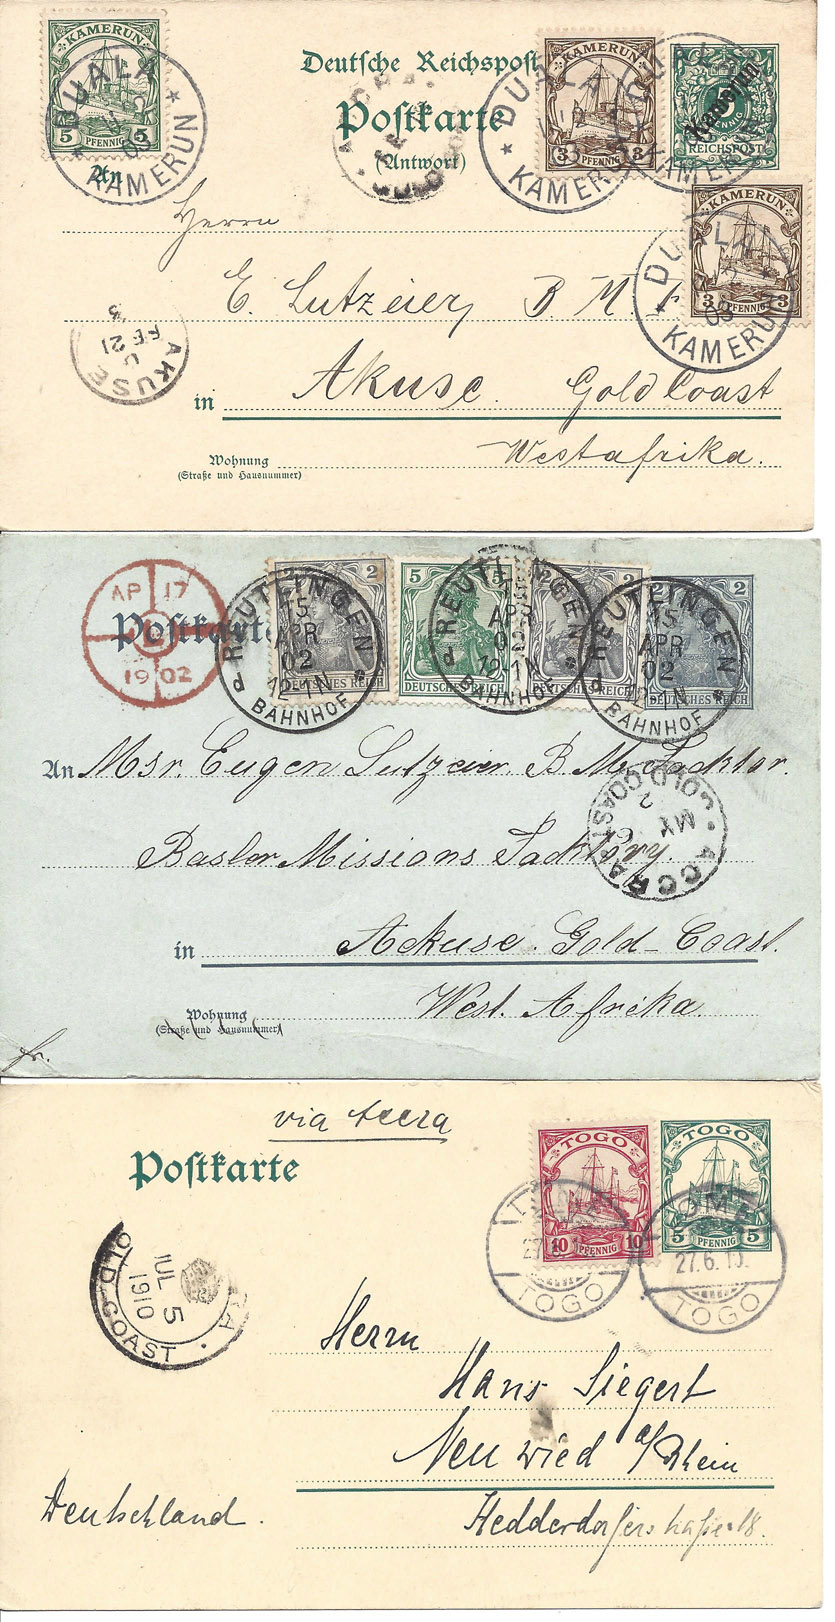 KAMERUN
5 5
PFENNIG
DUALA
03
KAMERUN
Deutsche Reichspost
Postkarte
(Antwort)
KAMERUN
3 3
PFENNIG
DUALA
KAMERUN
DUALA
KAMERUN
5
PFENNIG
Kamerun
REICHSPOST
KAMERUN
3 3
PFENNIG
DUALA
03
KAMERUN
An
Herrn
E. Lutzeier, B M F
Akuse. Gold Coast
in
Westafrika.
Wohnung
(Straße und Hausnummer)
AKUSE
FE 21
3
AP 17
L
19 02
Postkarte
2
DEUTSCHES REICH
5 5
DEUTSCHES REICH
2
DEUTSCHES REICH
2
DEUTSCHES REICH
REUTLINGEN
15
APR
02
12-1N
BAHNHOF
REUTLINGEN
15
APR
02
12-1N
BAHNHOF
REUTLINGEN
15
APR
02
12-1N
BAHNHOF
An Msr. Eugen Lutzeier B. M. Facktor.
Basler Missions Facktory.
in Ackuse. Gold-Coast.
West. Afrika.
Wohnung
(Straße und Hausnummer)
fr.
ACCRA
GOLD COAST
MY
2
via Accra
Postkarte
TOGO
10 10
PFENNIG
TOGO
5 5
PFENNIG
TOGO
LOME
27.6.10.
TOGO
GOLD COAST
JUL 5
1910
Herrn
Hans Siegert
Neuwied a/Rhein
Deutschland.
Heddesdorferstraße 18.